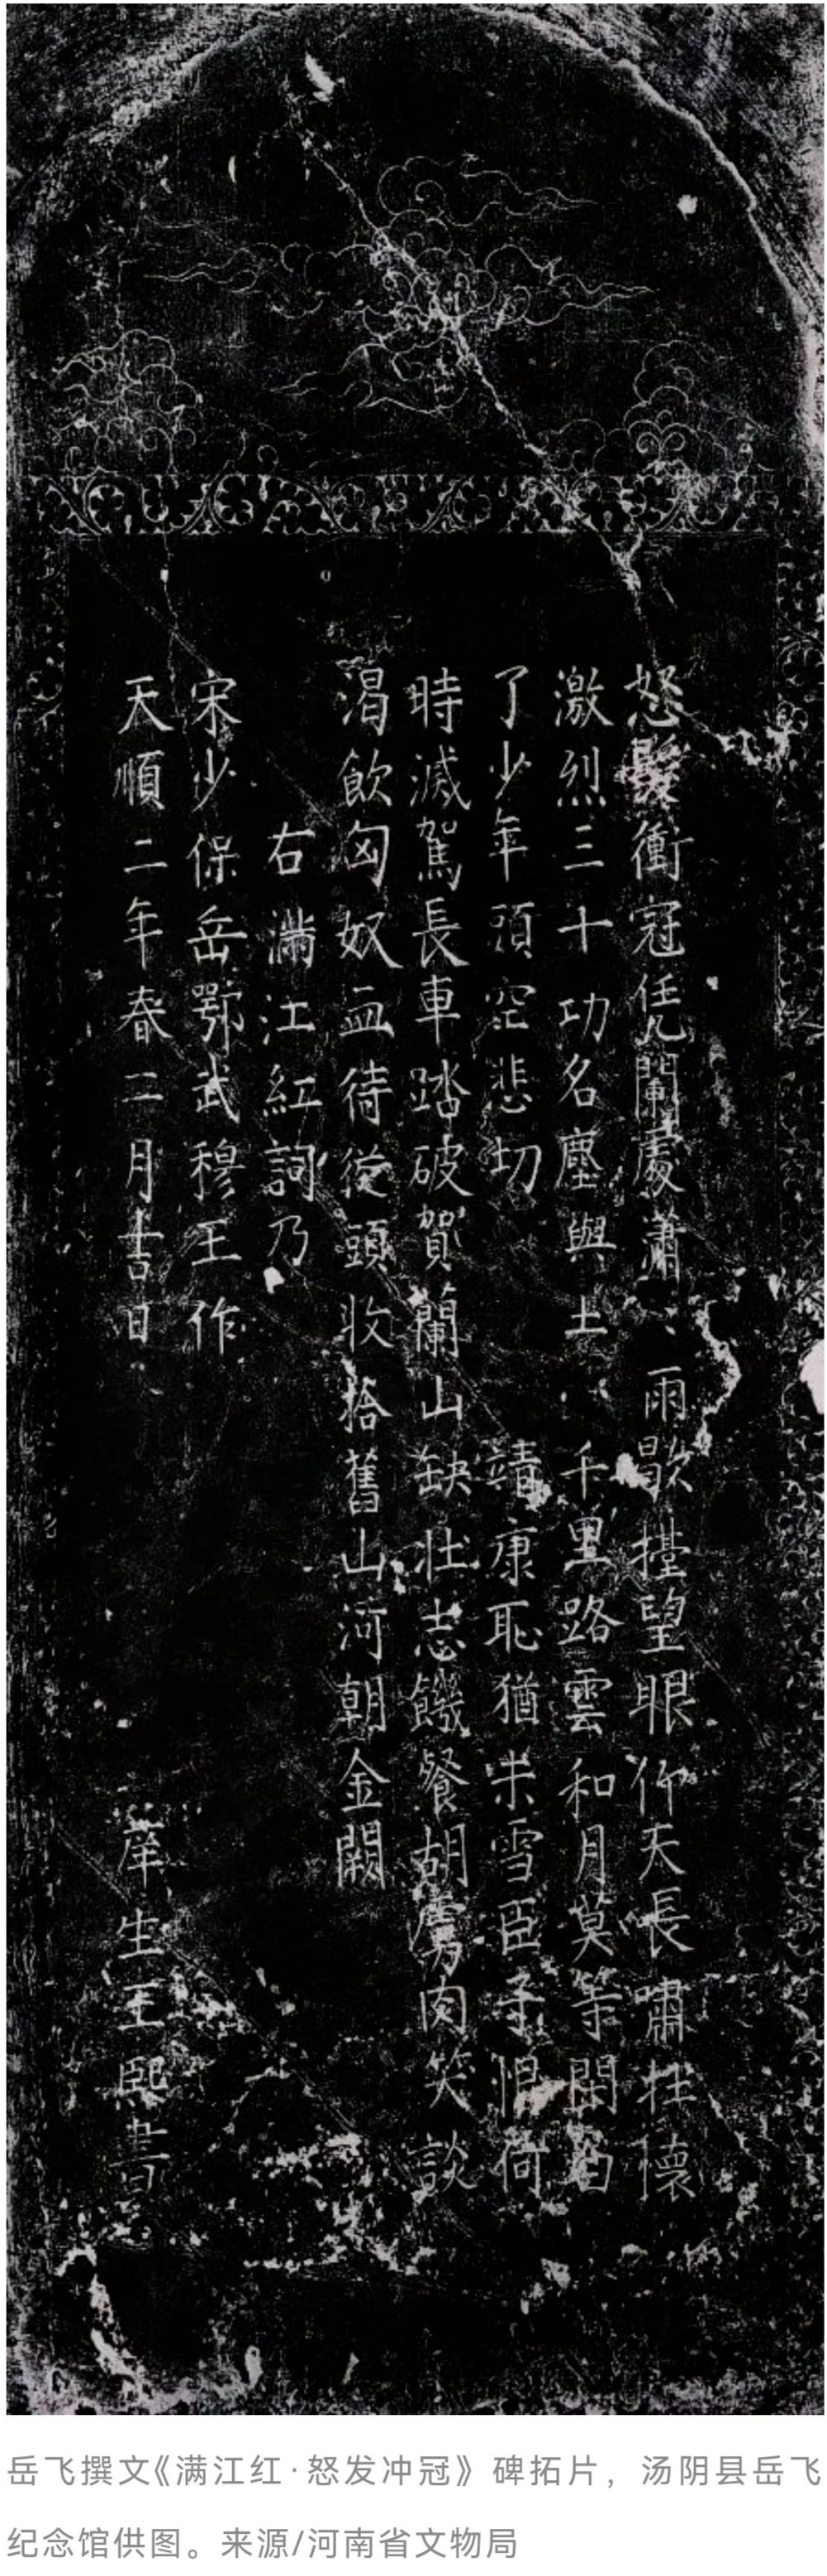 怒髮衝冠凭闌處瀟、雨歇擡望眼仰天長嘯壯懷
激烈三十功名塵與土 千里路雲和月莫等閒白
了少年頭空悲切 靖康恥猶未雪臣子恨何
時滅駕長車踏破賀蘭山缺壯志饑餐胡虜肉笑談
渴飲匈奴血待從頭收拾舊山河朝金闕
右滿江紅詞乃
宋少保岳鄂武穆王作
天順二年春二月吉日 庠生王熙書
岳飞撰文《满江红·怒发冲冠》碑拓片，汤阴县岳飞
纪念馆供图。来源/河南省文物局